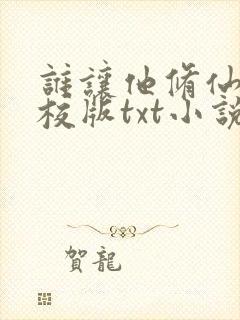 誰讓他脩仙
校版txt小說
賀龍